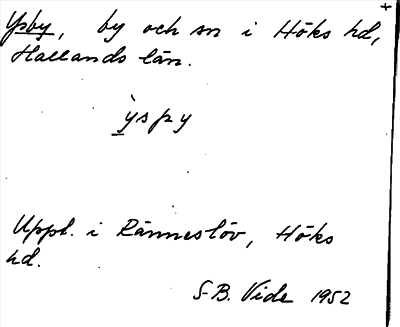 Ysby, by och sn i Höks hd,
Hallands län.
ỳspy
Uppt. i Ränneslöv, Höks
hd.
S-B. Vide 1952